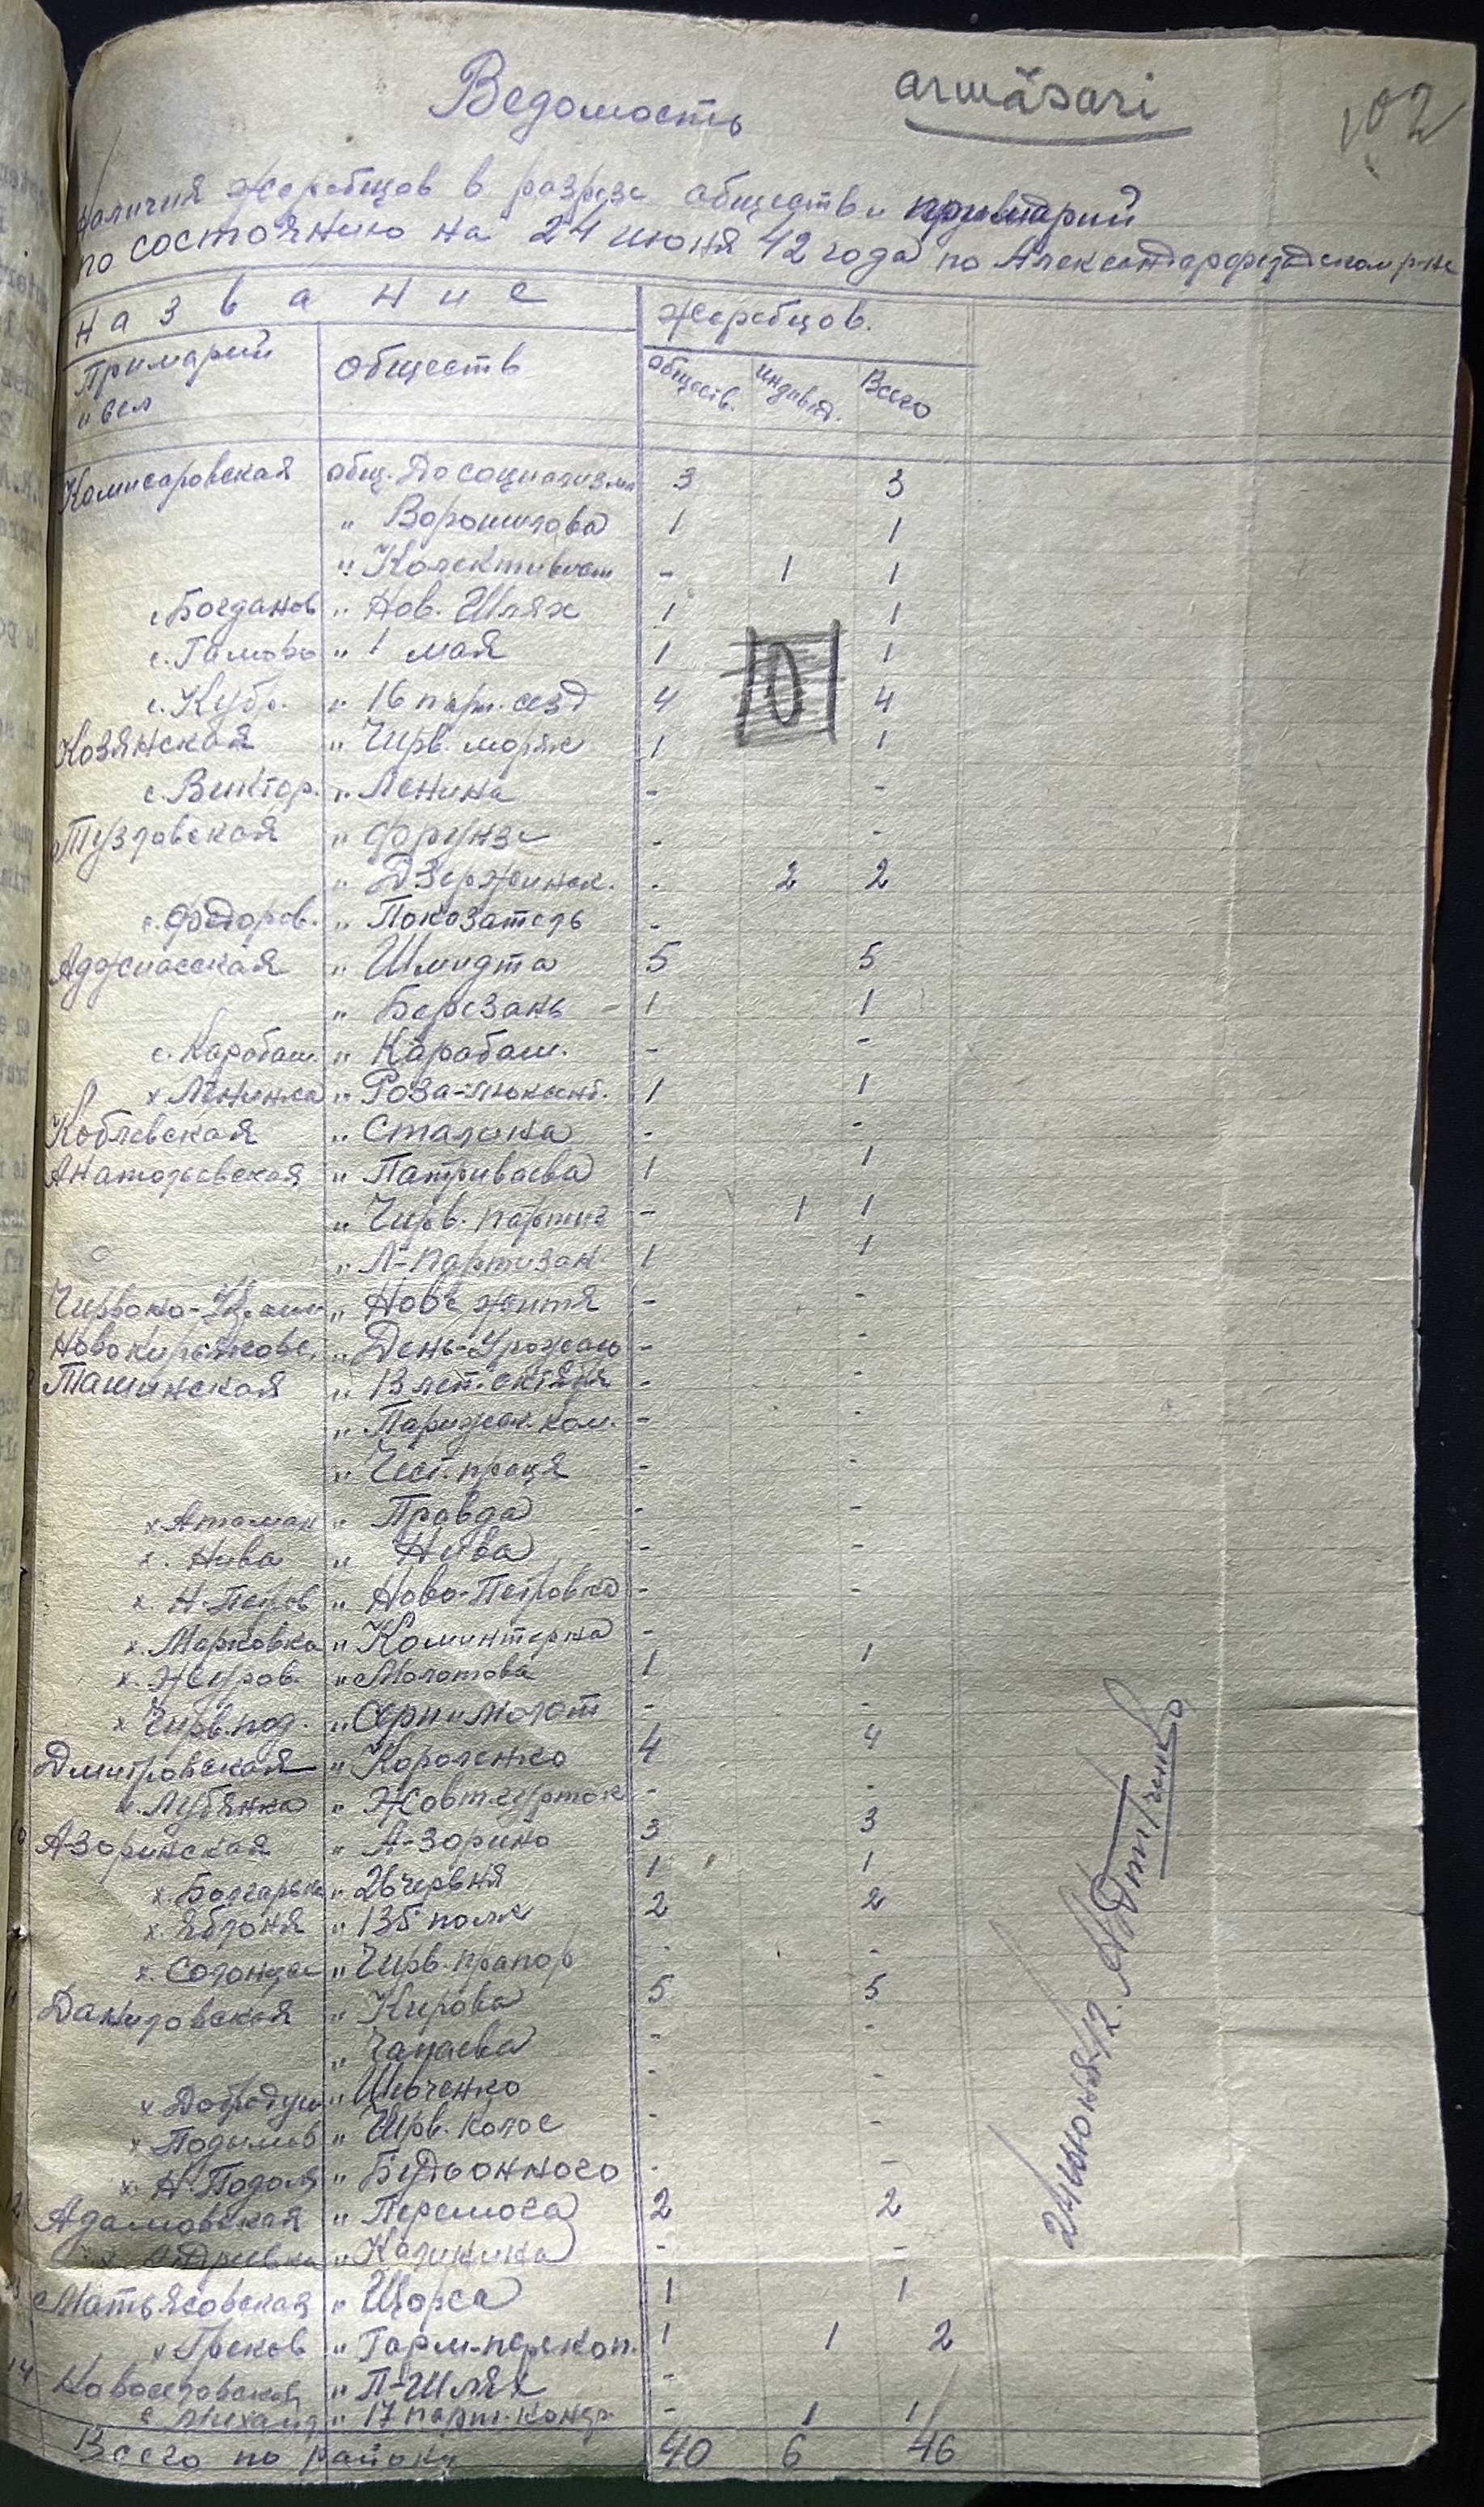 Ведомость
armăsari
102
наличия жеребцов в разрезе обществ и примарий
по состоянию на 24 июня 42 года по Александерфельдском р-не
название
жеребцов.
Примарий и сел
обществ
обществ.
индивид.
Всего
Комисаровская общ. До социализма 3 3
" Ворошилова 1 1
" Колективист - 1 1
с. Богданов " Нов. Шлях 1 1
с. " 1 мая 1 0 1
с. Кубр. " 16 парт. сезд 4 4
Козянская " Черв. моряк 1 1
с. Виктор. " Ленина - -
Тузловская " Фрунзе - -
" Дзержинск. - 2 2
с. Федоров. " Показатель -
Аджиасская " Шмидта 5 5
" Березань - 1 1
с. Карабаш. " Карабаш. - -
х Ленинка " Роза-люксмб. 1 1
Коблевская " Сталина - -
Анатольевская " Патриваева 1 1
" Черв. партиз - 1 1
" Л-партизан. 1 1
Червоно- " Нове життя - -
Новокирьяковс. " День-Урожаю - -
Ташинская " 13 лет. октября - -
" Парижск. ком. - -
" Чест. праця - -
х Атаман " Правда - -
х. Нива " Нива - -
х Н-Петров " Ново-Петровка - -
х. Марковка " Коминтерна -
х. Журов. " Молотова 1 1
х Черв. под. " Серп и молот - -
Дмитровская " Короленко 4 4
х. Лубянка " Жовт. гурток - -
10 А-Зоринская " А-Зорино 3 3
х. Болгарка " 26 червня 1 1
х. Яблоня " 135 полк 2 2
х. Солонцы " Черв. прапор - -
11 Даниловская " Кирова 5 5
" Чапаева - -
х Добродуш " Шевченко - -
х Подымов " Черв. колос - -
х Н-Подоля " Будьонного - -
12 Адамовская " Перемога 2 2
х " Калинина - -
13 Матьясовская " Щорса 1 1
х Греков " Гарм-перекоп. 1 1 2
14 Новоселовская " П-Шлях -
с Михайл. " 17 парт. конфр. - 1 1
Всего по району 40 6 46
24 июня 42.